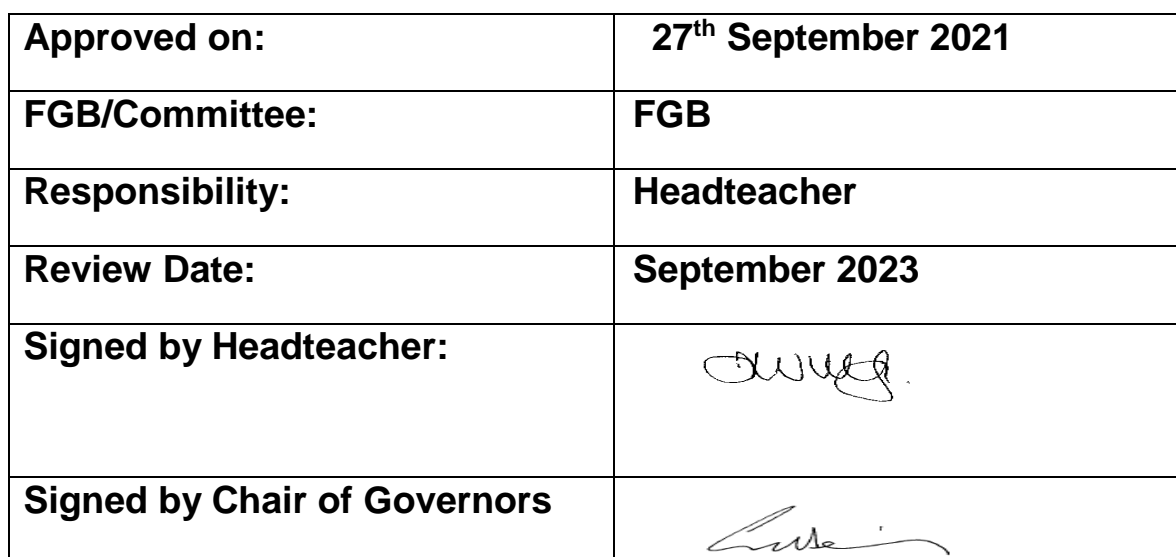 Approved on: 27th September 2021
FGB/Committee: FGB
Responsibility: Headteacher
Review Date: September 2023
Signed by Headteacher:
Signed by Chair of Governors